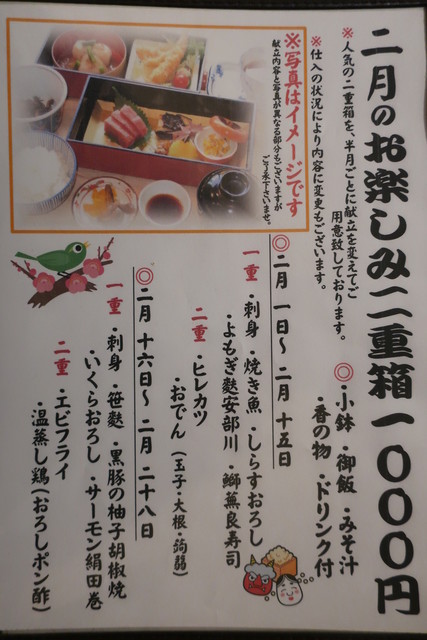 二月のお楽しみ二重箱一000円
※人気の二重箱を、半月ごとに献立を変えてご
用意致しております。
※仕入の状況により内容に変更もございます。
◎・小鉢・御飯・みそ汁
・香の物・ドリンク付
※写真はイメージです
献立内容と写真が異なる部分もございますが
ご了承下さいませ。
◎二月一日〜二月十五日
一重・刺身・焼き魚・しらすおろし
・よもぎ麩安部川・鰤蕪良寿司
二重・ヒレカツ
・おでん(玉子・大根・蒟蒻)
◎二月十六日〜二月二十八日
一重・刺身・笹麩・黒豚の柚子胡椒焼
・いくらおろし・サーモン絹田巻
二重・エビフライ
・温蒸し鶏(おろしポン酢)